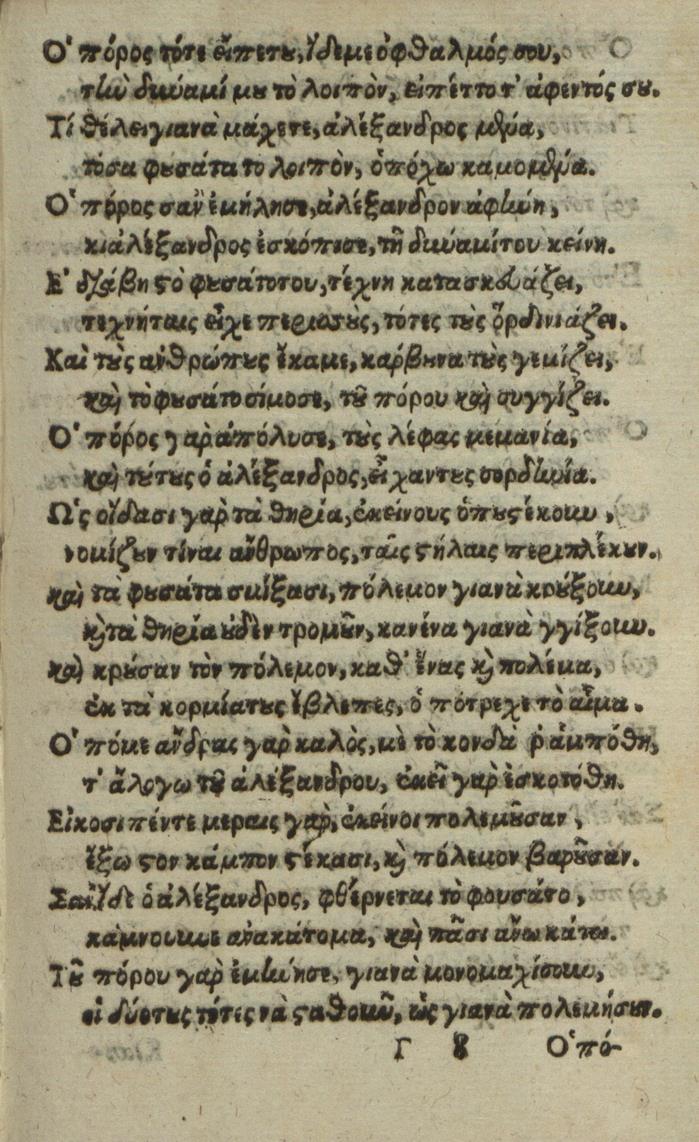 Ὁ πόρος τότε εἶπετου, ἴδεμε ὀφθαλμός σου,
τὴν δύναμί μου τὸ λοιπὸν, εἰπέττο τ' ἀφεντός σου.
Τί θέλει γιανὰ μάχετε, ἀλέξανδρος μὲ μένα,
τόσα φουσάτα το λοιπὸν, ὁπόχω καμομένα.
Ὁ πόρος σαν ἐμήλησε, ἀλέξανδρον ἀφίνη,
κιἀλέξανδρος ἐσκόπισε, τῆ δύναμίτου κείνη.
Ἐδιάβη στὸ φουσάτοτου, τέχνη κατασκευάζει,
τεχνήταις εἶχε περισσοὺς, τότες τοὺς ὀρδινιάζει.
Καὶ τοὺς ἀνθρώπους ἔκαμε, κάρβουνα τοὺς γεμίζει,
καὶ τὸ φουσάτο σίμοσε, τοῦ πόρου καὶ συγγίζει.
Ὁ πόρος γὰρ ἀπόλυσε, τοὺς λέφας μεμανία,
καὶ τούτους ὁ ἀλέξανδρος, εἶχαντους σορδινία.
Ὡς οἴδασι γὰρ τὰ θηρία, ἐκείνους ὁποῦ στέκουν,
νομίζουν τίναι ἄνθρωπος, ταῖς στήλαις περιπλέκουν.
καὶ τὰ φουσάτα σμίξασι, πόλεμον γιανὰ κρούξουν,
κὶ τὰ θηρία οὐδὲν τρομοῦν, κανένα γιανὰ γγίξουν.
καὶ κρούσαν τὸν πόλεμον, καθ' ἕνας κὶ πολέμα,
ἐκ τὰ κορμίατους ἔβλεπες, ὁ πότρεχε τὸ αἷμα.
Ὁ πόμε ἄνδρας γὰρ καλὸς, μὲ τὸ κονδὰ ῥάμπόθη,
τ' ἄλογω τοῦ ἀλεξάνδρου, ἐκεῖ γὰρ ἐσκοτόθη.
Εἴκοσι πέντε μέραις γὰρ, ἐκείνοι πολεμοῦσαν,
ἔξω στον κάμπον στέκασι, κὶ πόλεμον βαροῦσαν.
Σαν ἴδε ὁ ἀλέξανδρος, φθέρνεται τὸ φουσάτο,
κάμνουνμε ἀνακάτομα, καὶ πᾶσι ἄνω κάτω.
Τοῦ πόρου γὰρ ἐμίνησε, γιανὰ μονομαχίσουν,
οἱ δύοτους τότες νὰ σταθοῦν, ὡς γιανὰ πολεμήσουν.
Γ 8 Ὁπό-